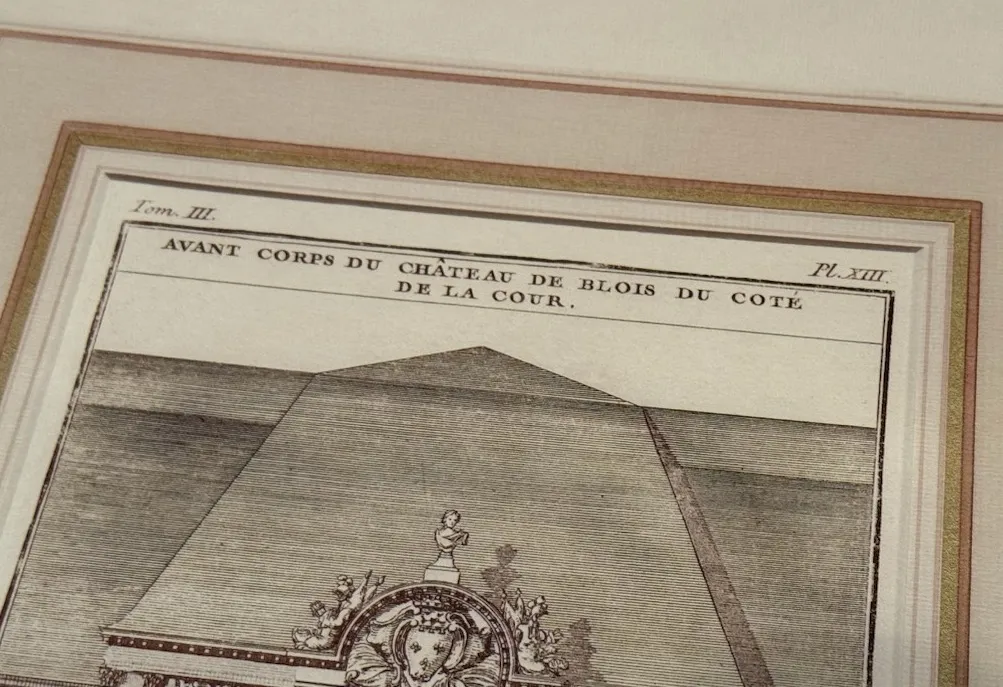 Tom. III.
Pl. XIII.
AVANT CORPS DU CHÂTEAU DE BLOIS DU COTÉ
DE LA COUR.